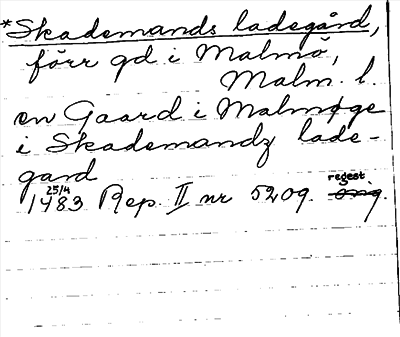 *Skademands ladegård,
förr gd i Malmö,
Malm. l.
en Gaard i Malmøge
i Skademandz lade-
gard
25/4 1483 Rep. II nr 5209. regest. orig.